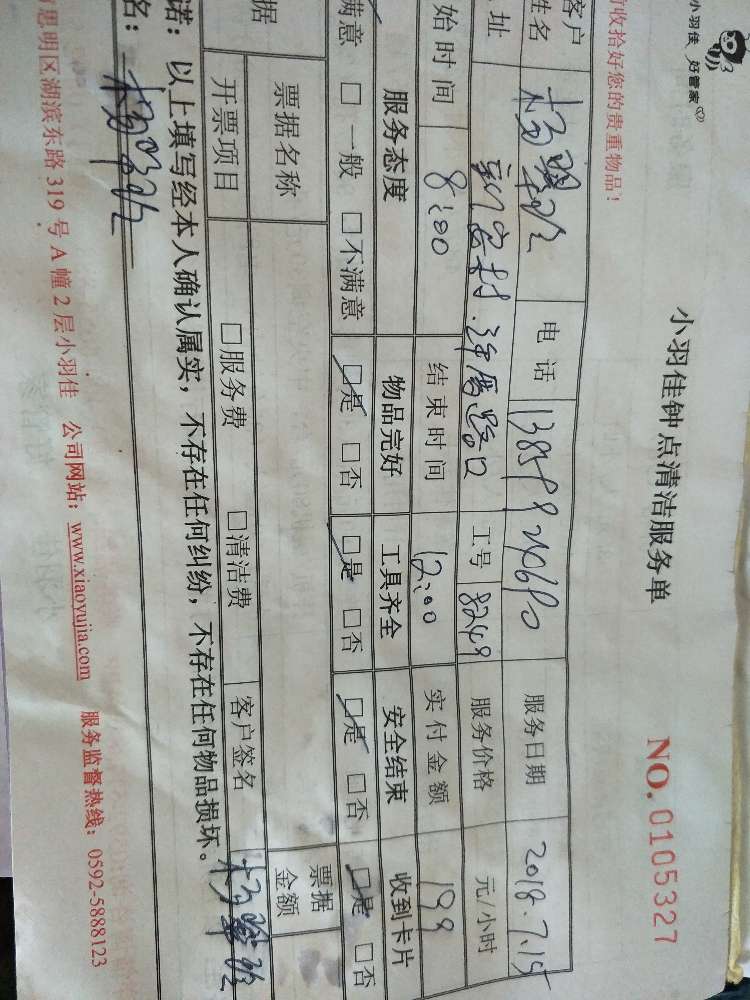 小羽佳 好管家
小羽佳钟点清洁服务单
NO. 0105327
前收拾好您的贵重物品！
客户姓名 杨 电话 服务日期 2018.7.15
址 新安村 路口 工号 8249 服务价格 元/小时
始时间 8:00 结束时间 12:00 实付金额 199
服务态度 物品完好 工具齐全 安全结束 收到卡片
满意 □ 一般 □不满意 □是 □否 □是 □否 □是 □否 □是 □否
据 票据名称 票据金额
开票项目 □服务费 □清洁费 客户签名 杨
诺：以上填写经本人确认属实，不存在任何纠纷，不存在任何物品损坏。
名：杨
思明区湖滨东路 319 号 A 幢 2 层小羽佳 公司网站：www.xiaoyujia.com 服务监督热线：0592-5888123